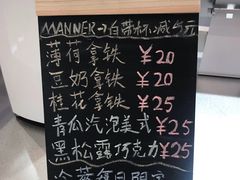 MANNER→自带杯减5元
薄荷拿铁 ¥20
豆奶拿铁 ¥20
桂花拿铁 ¥25
青瓜汽泡美式 ¥25
黑松露巧克力 ¥25